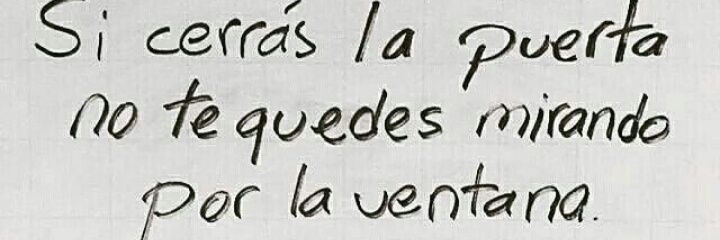 Si cerrás la puerta
no te quedes mirando
por la ventana.